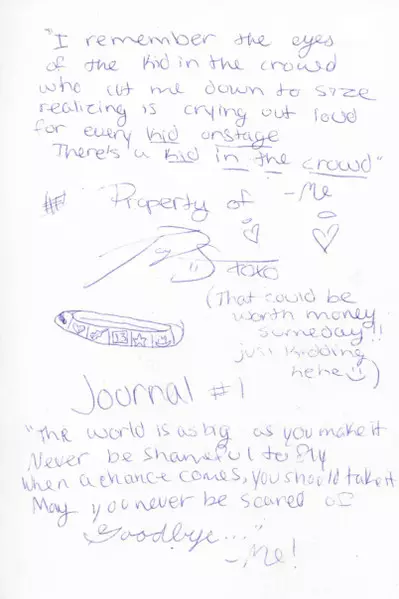 "I remember the eyes
of the kid in the crowd
who cut me down to size
realizing is crying out loud
for every kid onstage
There's a kid in the crowd"
-Me
# Property of
xoxo
(That could be
worth money
someday!!
just kidding
hehe )
13
Journal #1
"The world is as big as you make it
Never be shameful to fly
When a chance comes, you should take it
May you never be scared of
Goodbye..."
-Me!